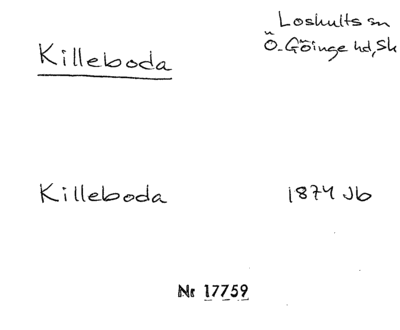 Loshults sn
Killeboda
Ö-Göinge hd, Sk
Killeboda
1874 Jb
Nr 17759